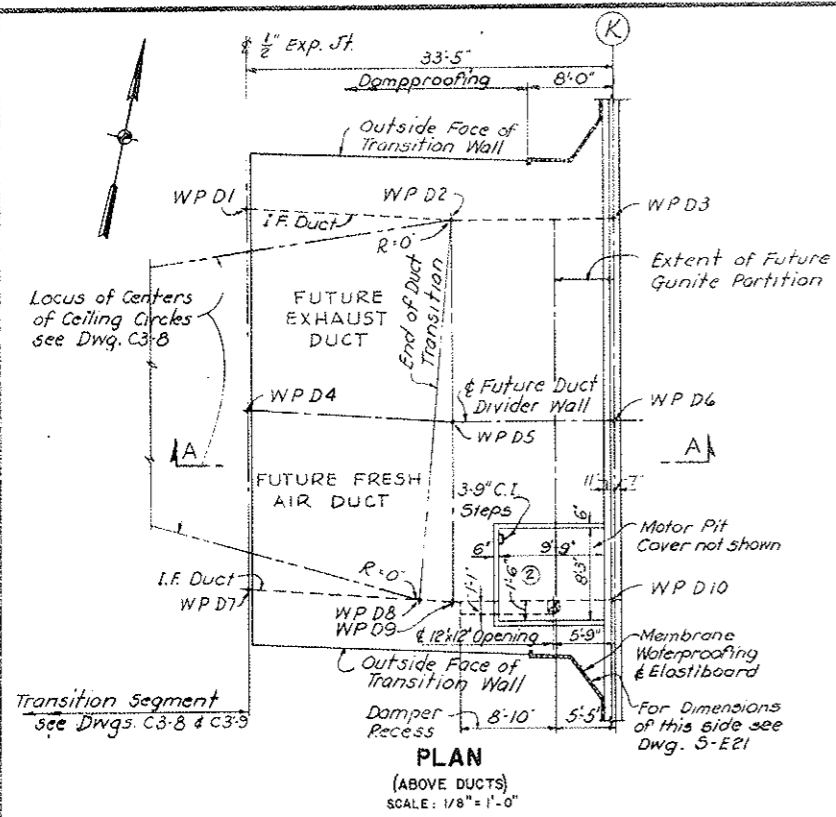 ℄ 1/2" Exp. Jt.
K
33'-5"
Dampproofing
8'-0"
Outside Face of
Transition Wall
WP D1
WP D2
WP D3
I.F. Duct
R=0"
Extent of Future
Gunite Partition
Locus of Centers
of Ceiling Circles
see Dwg. C3-8
FUTURE
EXHAUST
DUCT
End of Duct
Transition
WP D4
℄ Future Duct
Divider Wall
WP D6
WP D5
A
A
FUTURE FRESH
AIR DUCT
3-9" C.I.
Steps
11"
7"
6"
Motor Pit
Cover not shown
6"
9'-9"
8'-3"
2
1'-6"
1'-1"
I.F. Duct
R=0"
WP D7
WP D8
WP D9
WP D10
℄ 12"x12" Opening
5'-9"
Outside Face of
Transition Wall
Membrane
Waterproofing
& Elastiboard
Transition Segment
see Dwgs. C3-8 & C3-9
Damper
Recess
8'-10"
5'-5"
For Dimensions
of this side see
Dwg. S-E21
PLAN
(ABOVE DUCTS)
SCALE: 1/8" = 1'-0"